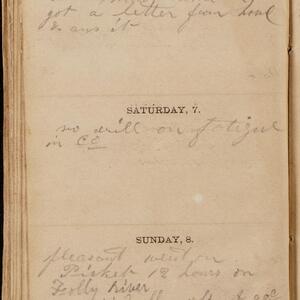 got a letter from home
& ans it
SATURDAY, 7.
no drill on fatigue
in Co
SUNDAY, 8.
pleasant went on
Picket 12 hours on
Folly River